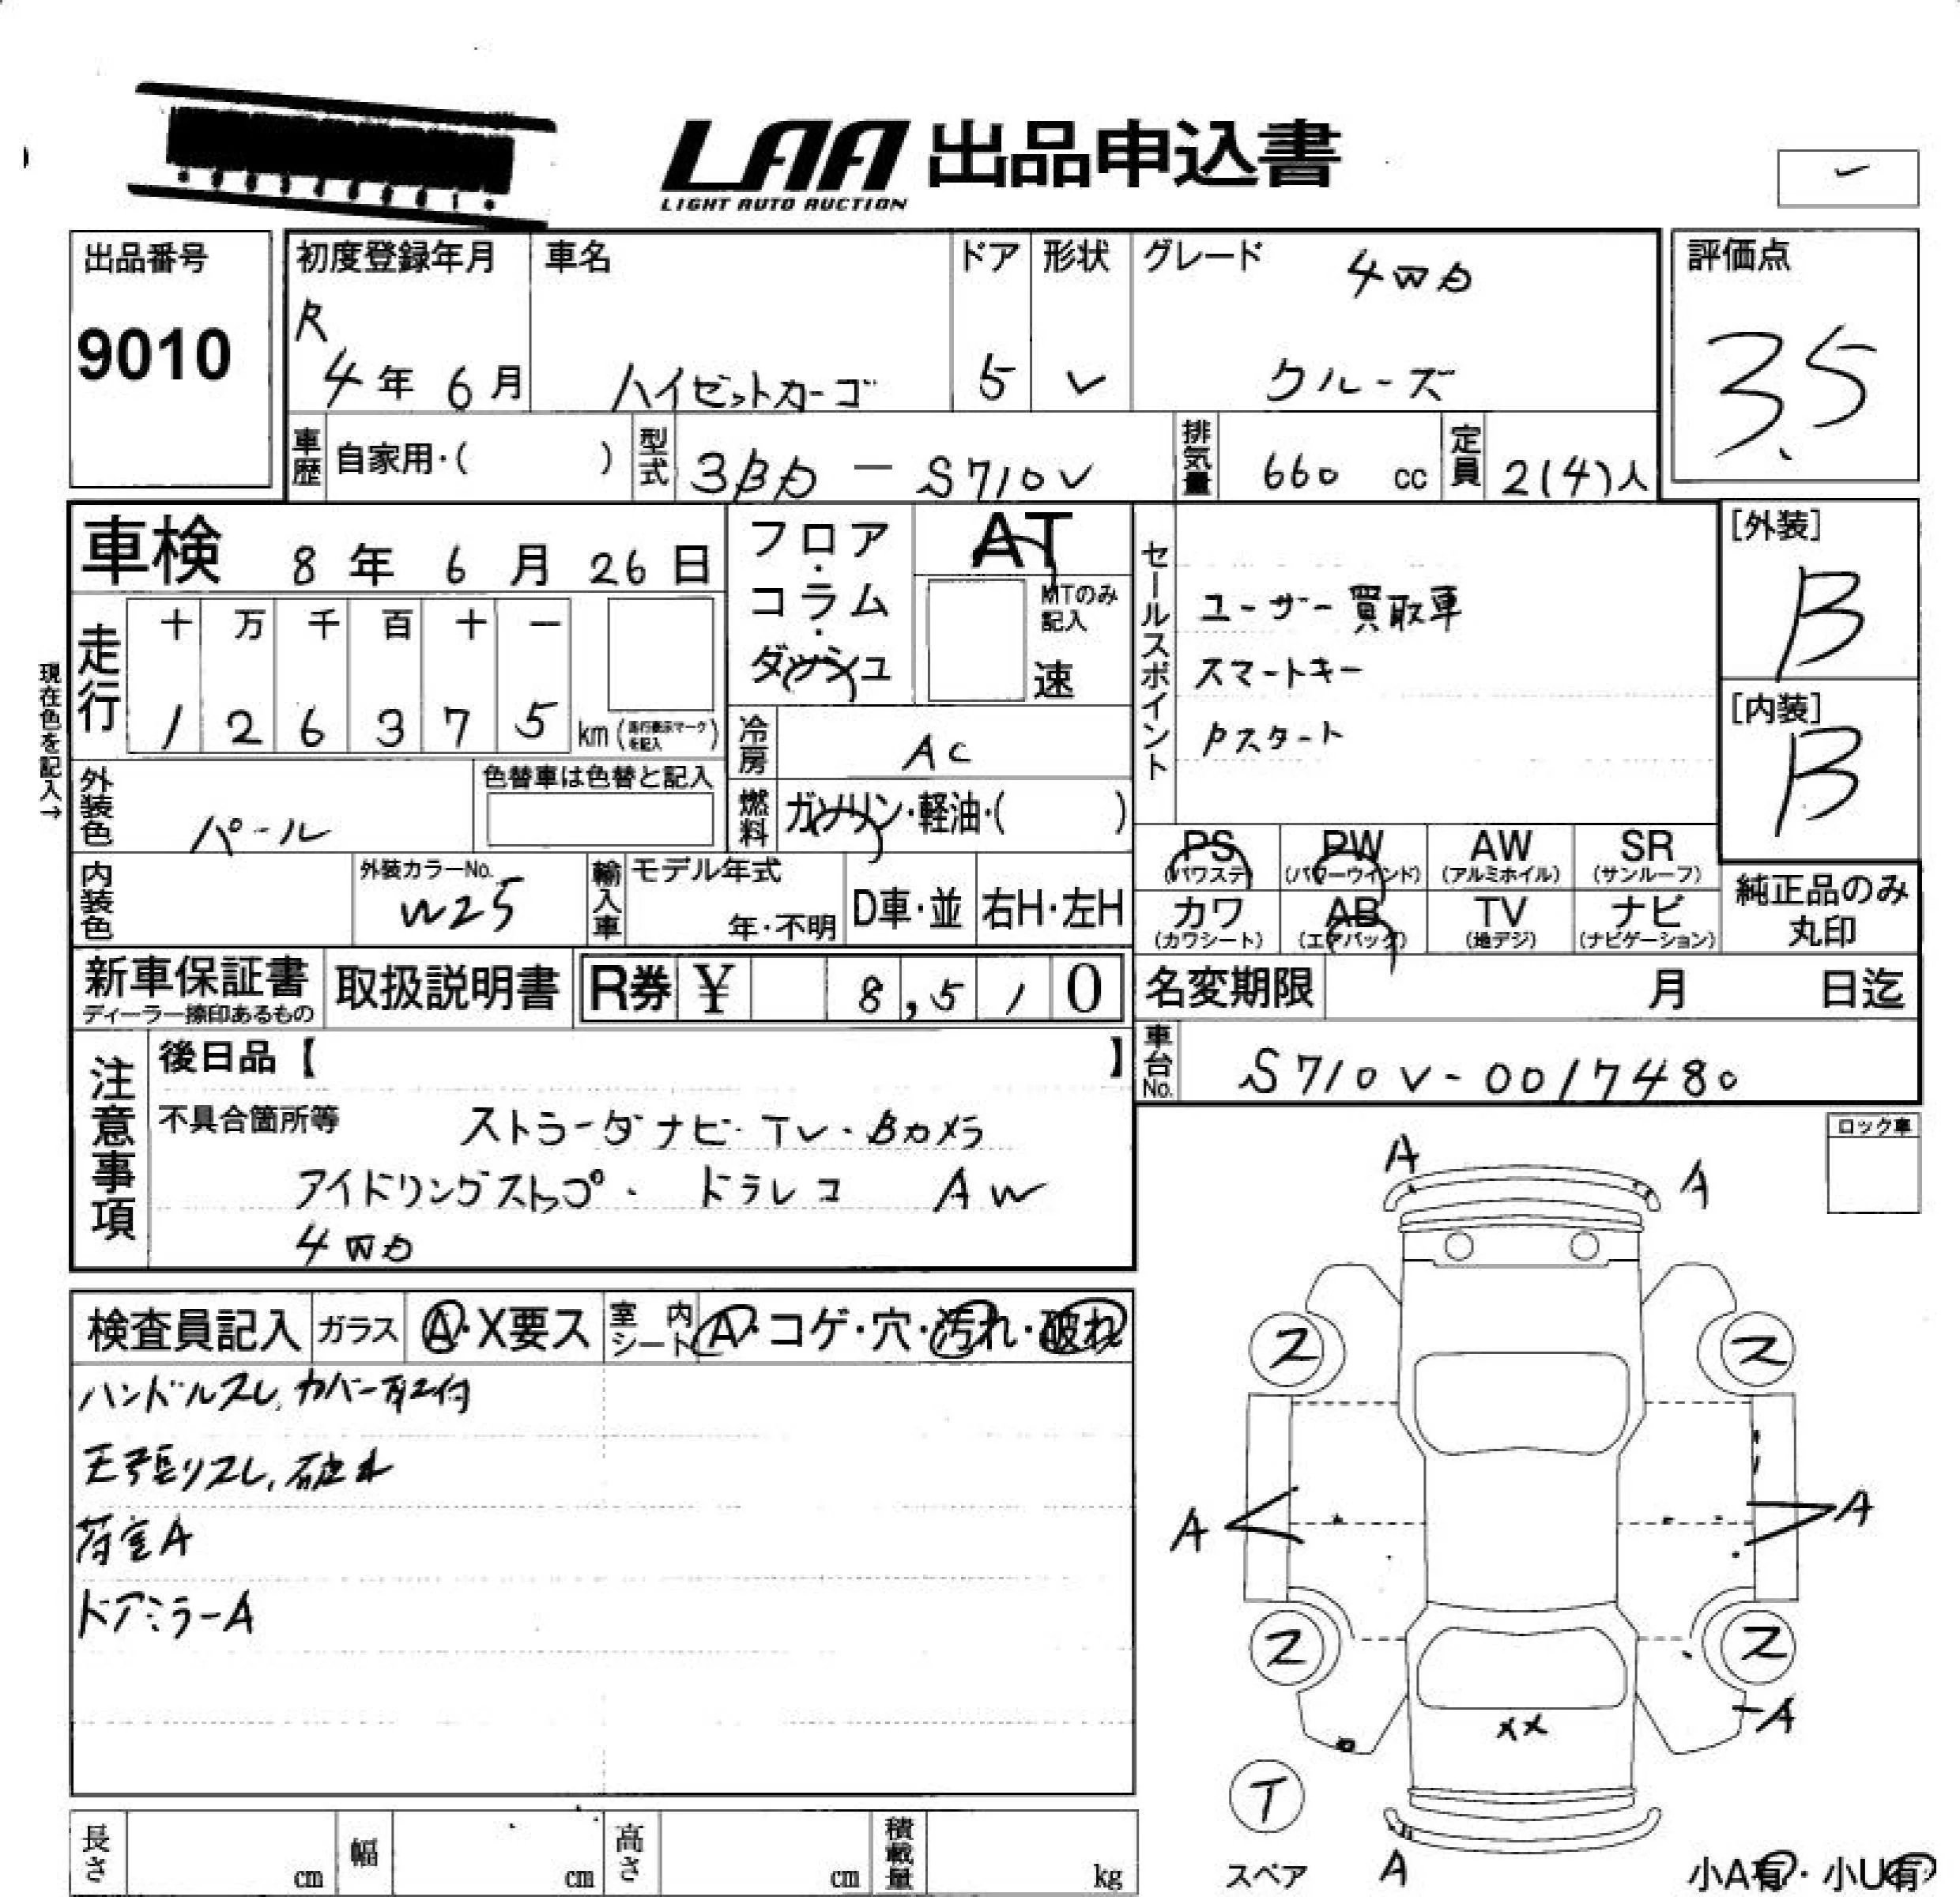 LAA 出品申込書
LIGHT AUTO AUCTION
出品番号
9010
初度登録年月
R
4年 6月
車名
ハイゼットカーゴ
ドア
5
形状
V
グレード
4WD
クルーズ
評価点
3.5
車歴 自家用・( )
型式 3BD - S710V
排気量 660 cc
定員 2(4)人
車検 8年 6月 26日
フロア・コラム・ダッシュ
AT
MTのみ記入
速
セールスポイント
ユーザー買取車
スマートキー
Pスタート
[外装]
B
[内装]
B
現在色を記入→
走行
十 万 千 百 十 一
1 2 6 3 7 5 km(走行表示マークを記入)
冷房 AC
外装色 パール
色替車は色替と記入
燃料 ガソリン・軽油・( )
PS (パワステ)
PW (パワーウインド)
AW (アルミホイル)
SR (サンルーフ)
カワ (カワシート)
AB (エアバッグ)
TV (地デジ)
ナビ (ナビゲーション)
純正品のみ丸印
内装色
外装カラーNo.
W25
輸入車
モデル年式
年・不明
D車・並
右H・左H
新車保証書
ディーラー捺印あるもの
取扱説明書
R券 ¥ 8,510
名変期限 月 日迄
車台No. S710V-0017480
注意事項
後日品【 】
不具合箇所等
ストラーダナビ・TV・Bカメラ
アイドリングストップ・ドラレコ AW
4WD
ロック車
検査員記入
ガラス A・X要ス
室内シート A・コゲ・穴・汚れ・破れ
ハンドルスレ,カバー取付
天張りスレ,破れ
荷室A
ドアミラーA
A
A
ス
ス
A
A
ス
ス
A
XX
T
スペア
A
小A有・小U有
長さ cm
幅 cm
高さ cm
積載量 kg